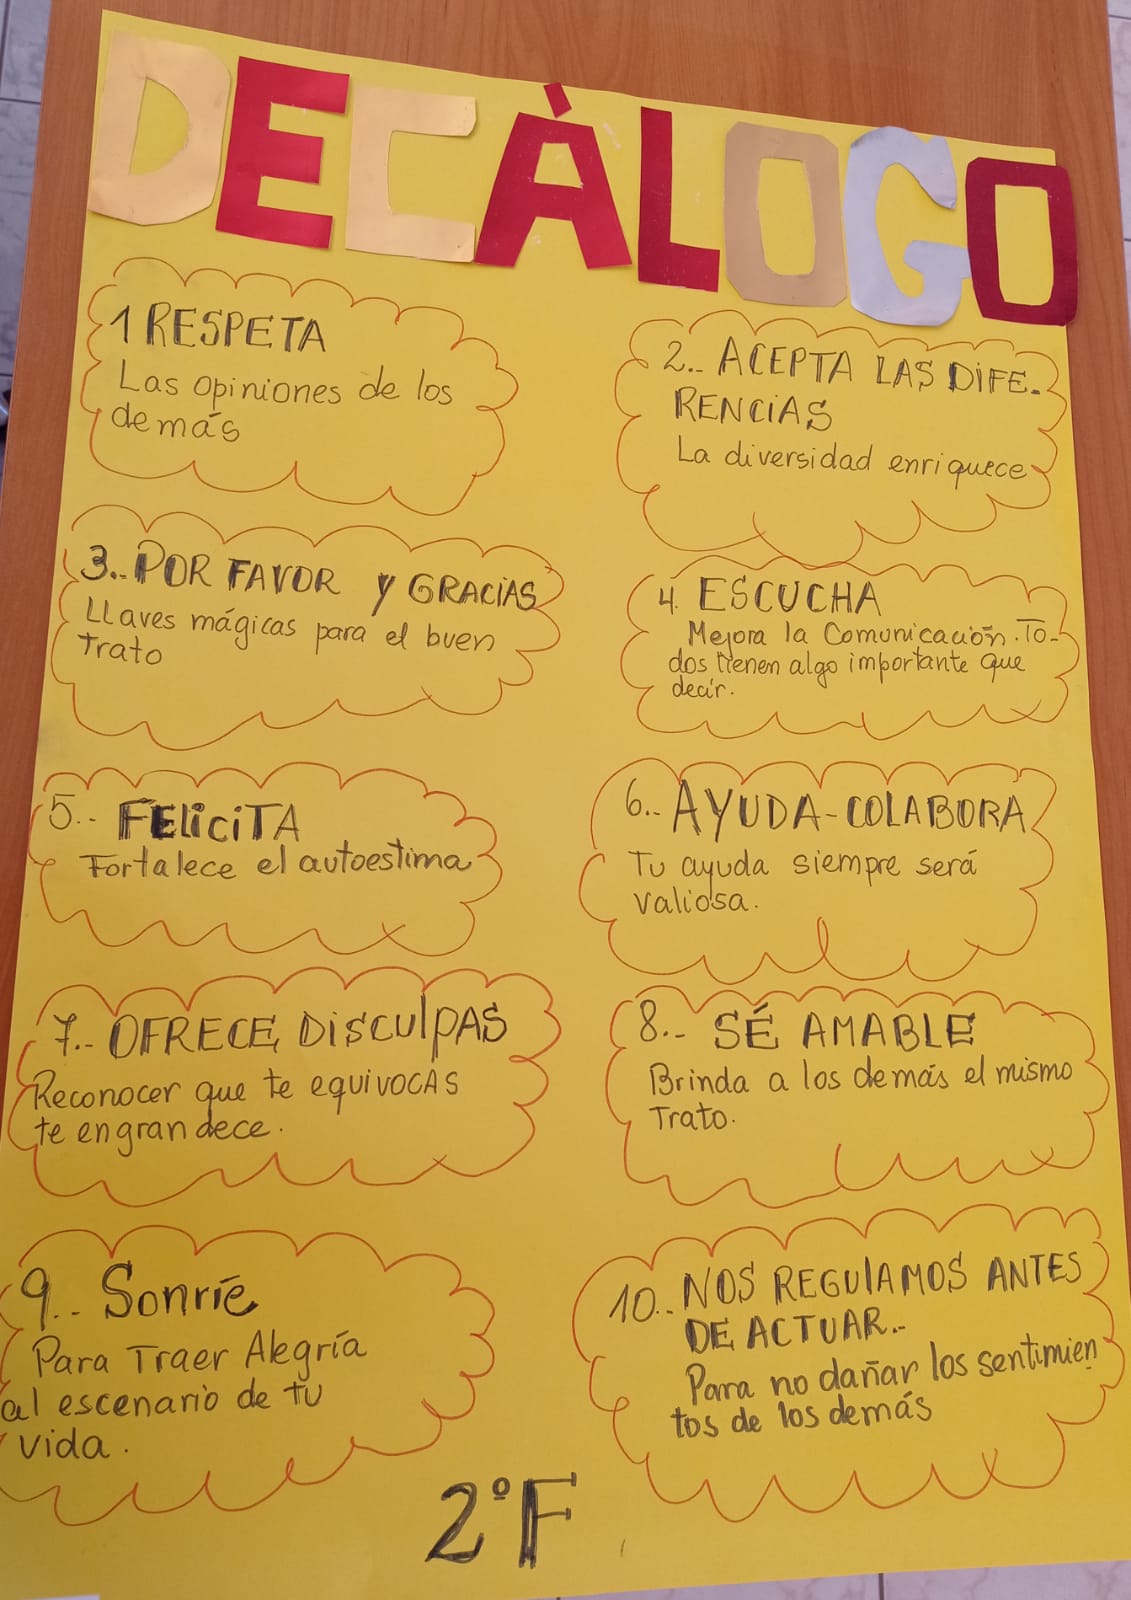 DECÀLOGO
1 RESPETA
Las opiniones de los
demás
2.- ACEPTA LAS DIFE-
RENCIAS
La diversidad enriquece
3.- POR FAVOR Y GRACIAS
Llaves mágicas para el buen
trato
4. ESCUCHA
Mejora la comunicación. To-
dos tienen algo importante que
decir.
5.- FELICITA
Fortalece el autoestima
6.- AYUDA-COLABORA
Tu ayuda siempre será
valiosa.
7.- OFRECE DISCULPAS
Reconocer que te equivocas
te engrandece.
8.- SÉ AMABLE
Brinda a los demás el mismo
Trato.
9.- Sonríe
Para Traer Alegría
al escenario de tu
vida.
10.- NOS REGULAMOS ANTES
DE ACTUAR.-
Para no dañar los sentimien
tos de los demás
2ºF